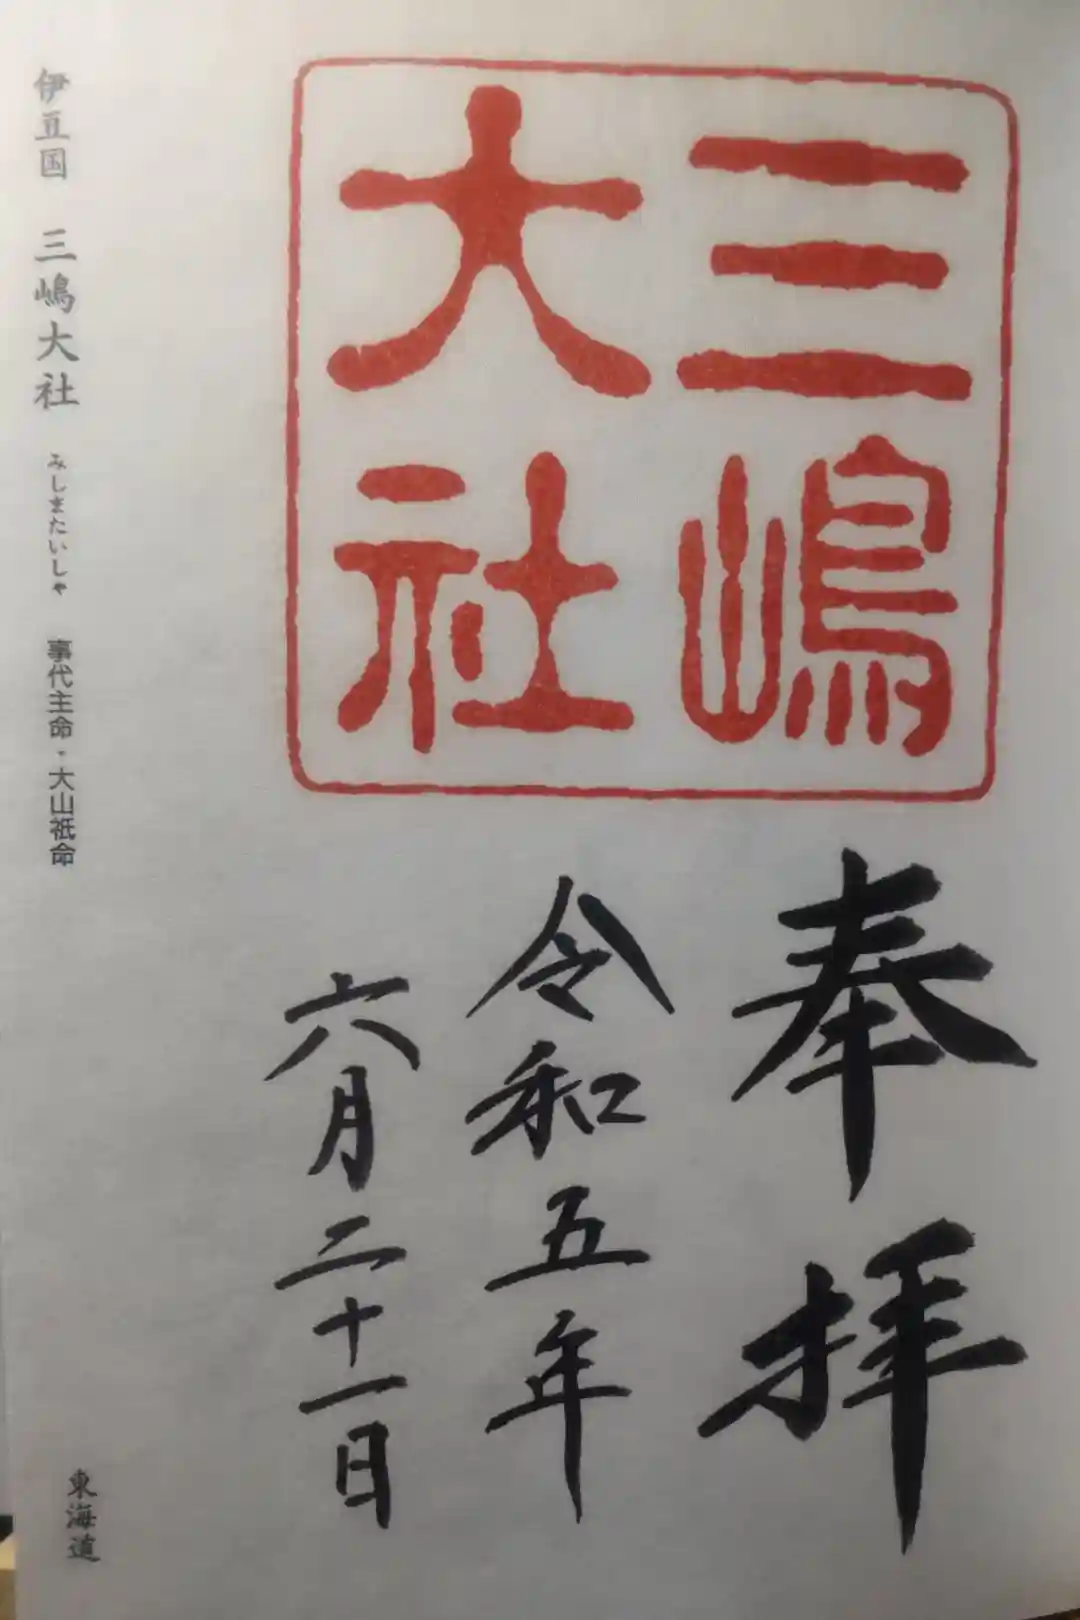 三嶋
大社
奉拝
令和五年
六月二十一日
伊豆国 三嶋大社 みしまたいしゃ 事代主命・大山祇命
東海道